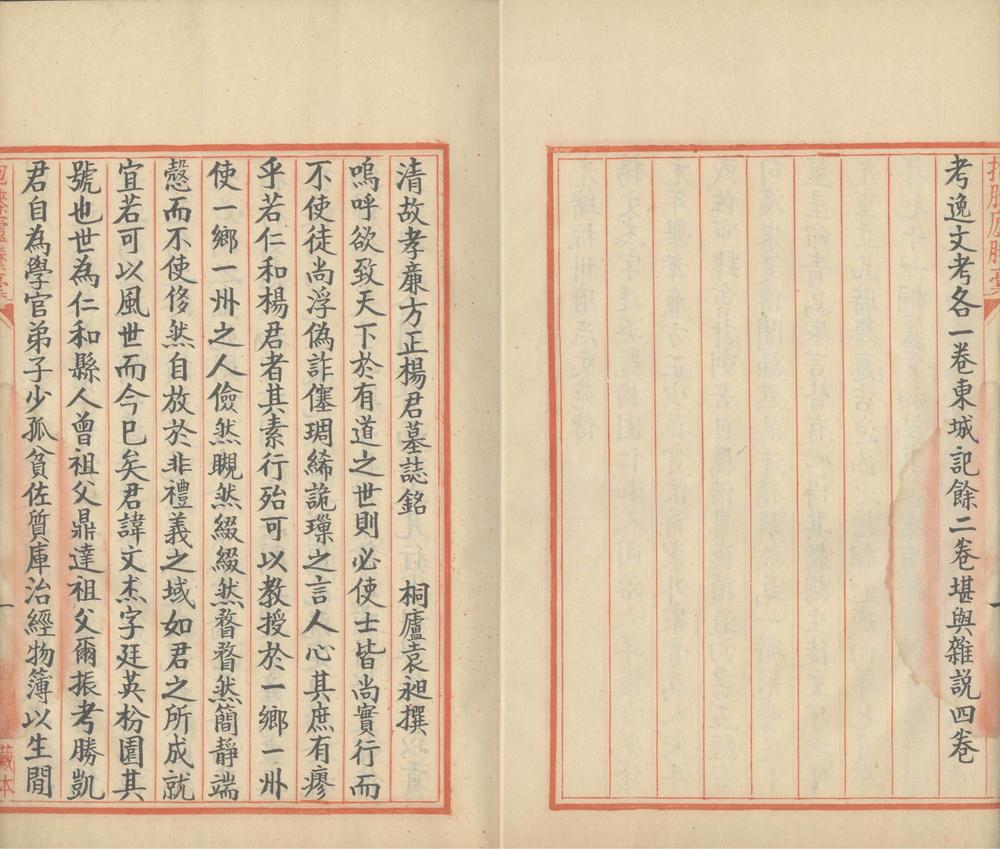 考逸文考各一卷東城記餘二卷堪輿雜説四卷
清故孝廉方正楊君墓誌銘　桐廬袁昶撰
嗚呼欲致天下於有道之世則必使士皆尚實行而
不使徒尚浮偽詐僿琱絺詭瓅之言人心其庶有瘳
乎若仁和楊君者其素行殆可以教授於一鄉一州
使一鄉一州之人儉然瞡然綴綴然瞀瞀然簡靜端
慤而不使侈然自放於非禮義之域如君之所成就
宜若可以風世而今已矣君諱文杰字廷英枌園其
號也世為仁和縣人曾祖父鼎達祖父爾振考勝凱
君自為學官弟子少孤貧佐質庫治經物簿以生閒
藏本